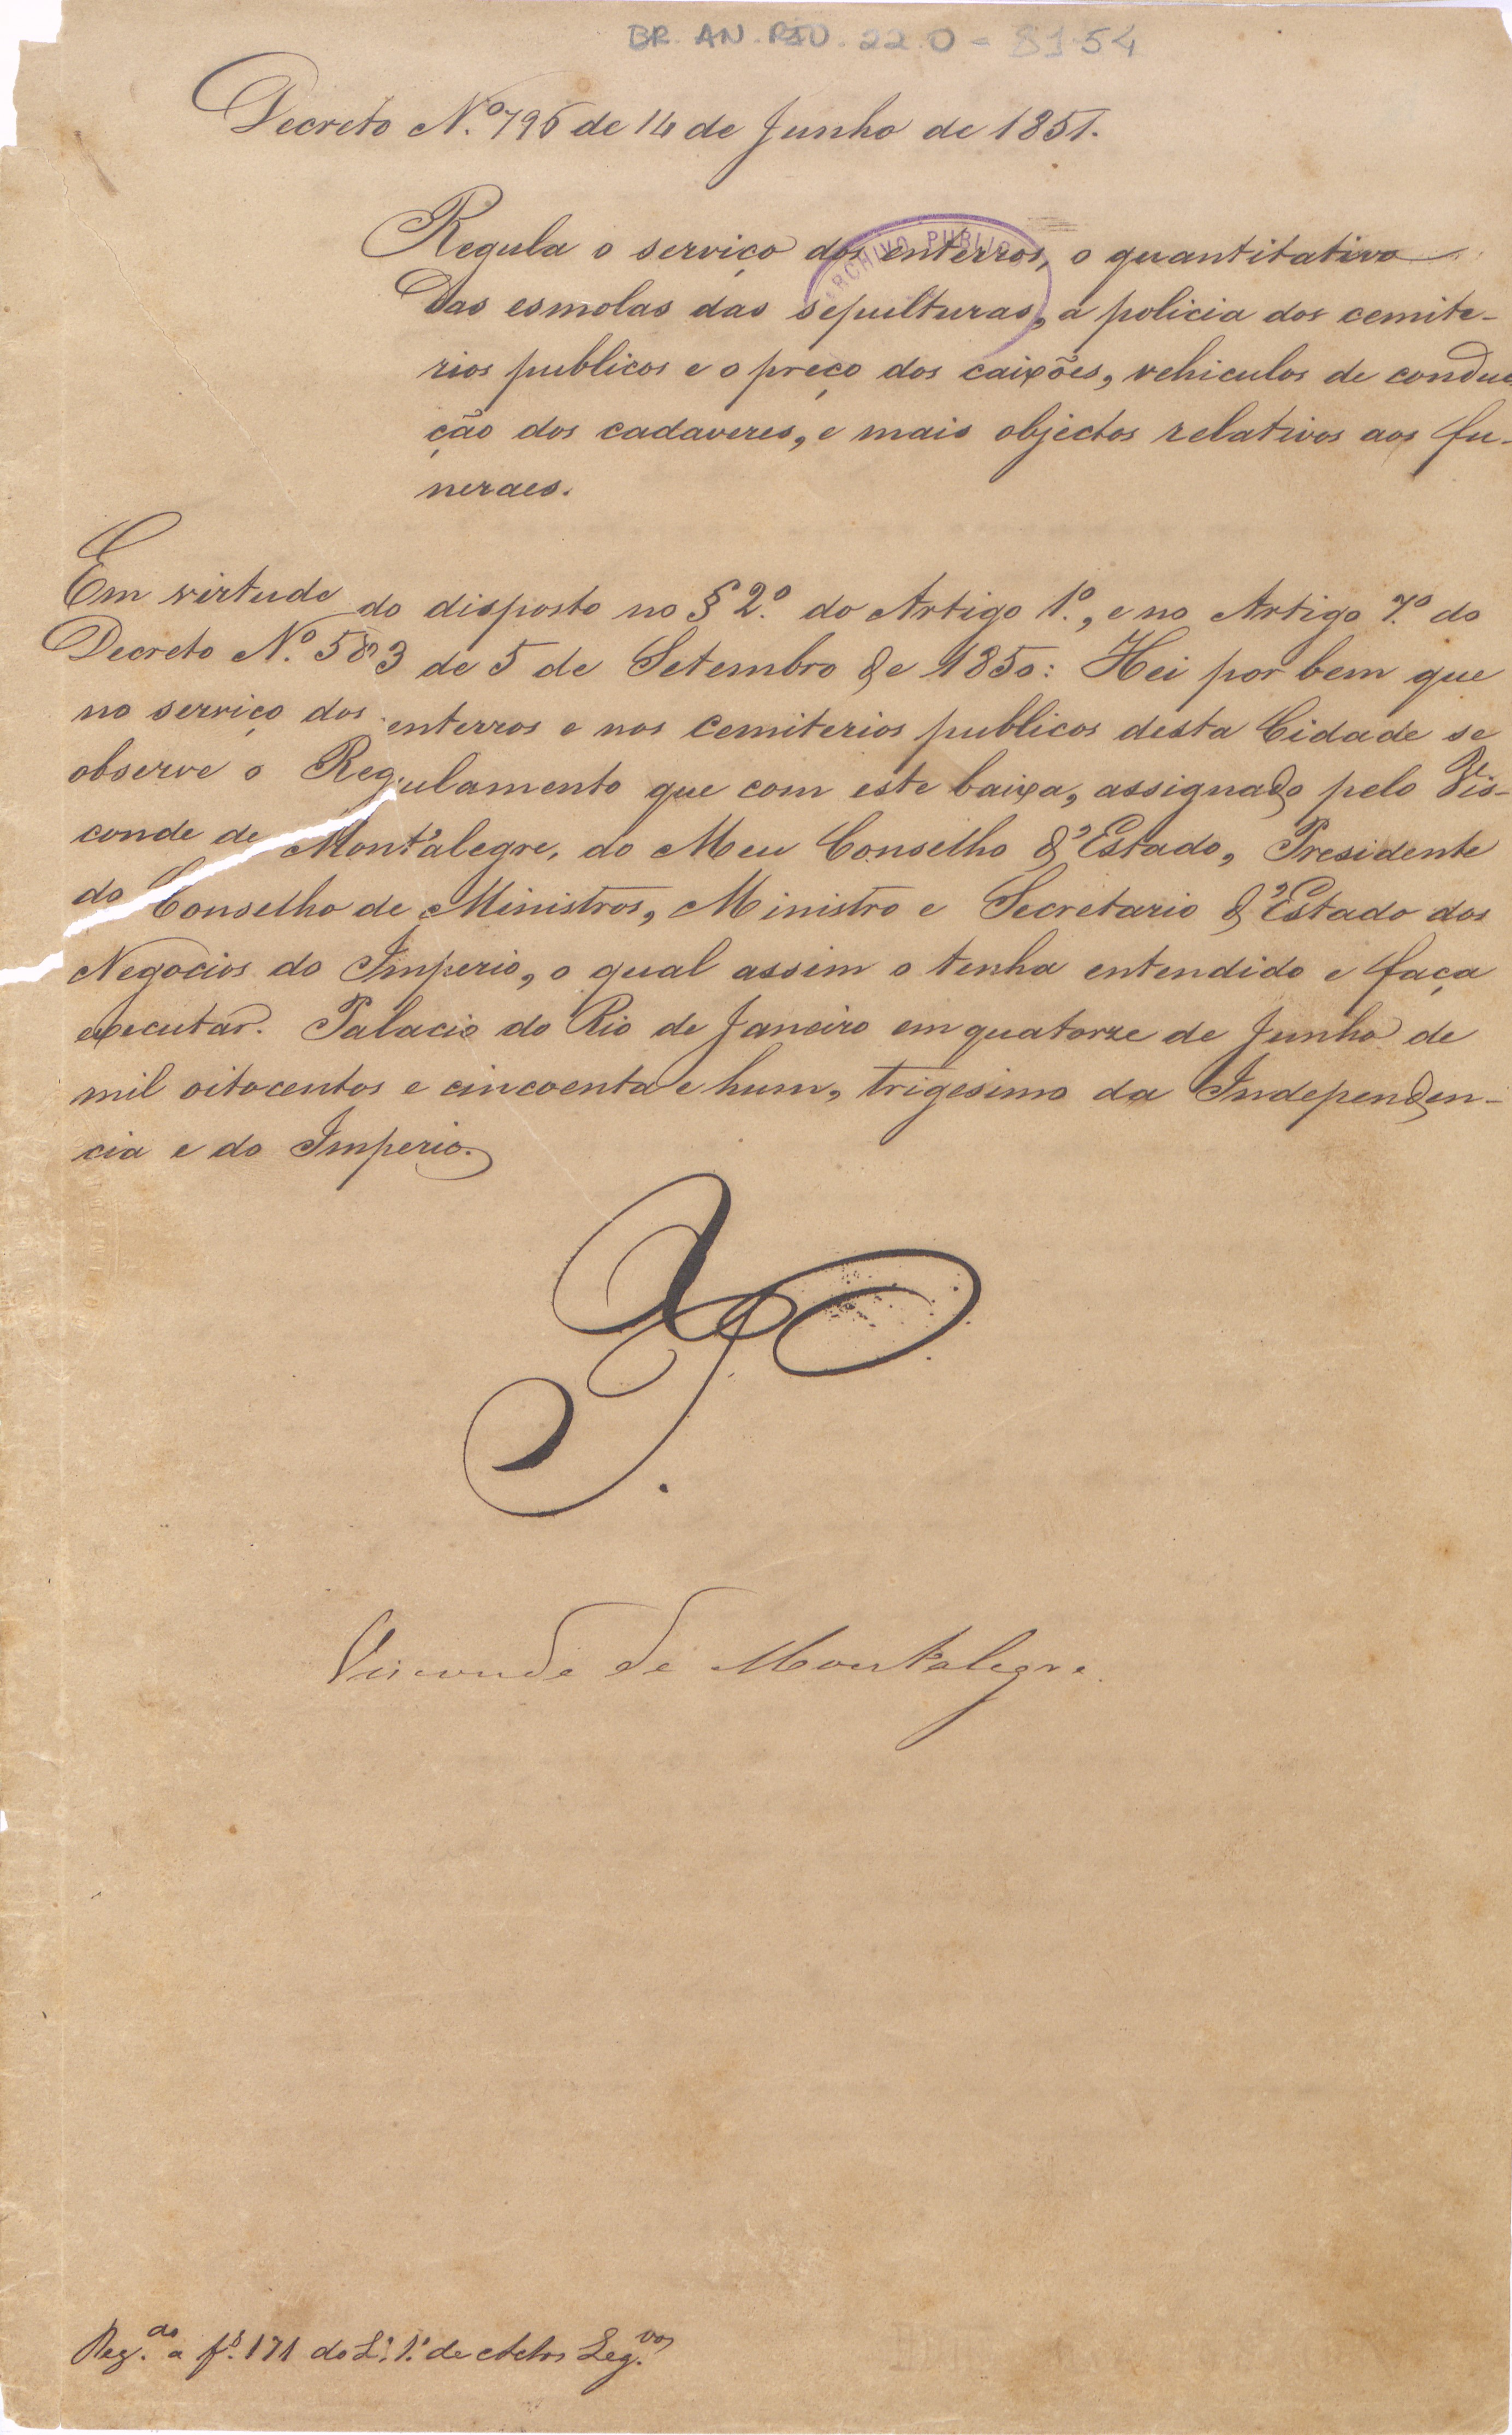 BR. AN. RIO. 22.0 - 8154
Decreto N.º 796 de 14 de Junho de 1851.
ARCHIVO PUBLICO
Regula o serviço dos enterros, o quantitativo
das esmolas das sepulturas, a policia dos cemite-
rios publicos e o preço dos caixões, vehiculos de conduc
ção dos cadaveres, e mais objectos relativos aos fu-
neraes.
Em virtude do disposto no § 2.º do Artigo 1.º, e no Artigo 7.º do
Decreto N.º 583 de 5 de Setembro de 1850: Hei por bem que
no serviço dos enterros e nos cemiterios publicos desta Cidade se
observe o Regulamento que com este baixa, assignado pelo Vis-
conde de Mont'alegre, do Meu Conselho d'Estado, Presidente
do Conselho de Ministros, Ministro e Secretario d'Estado dos
Negocios do Imperio, o qual assim o tenha entendido e faça
executar. Palacio do Rio de Janeiro em quatorze de Junho de
mil oitocentos e cincoenta e hum, trigesimo da Independen-
cia e do Imperio.
Visconde de Mont'alegre.
Reg.do a f.s 171 do L.º 1.º de Actos Leg.vos